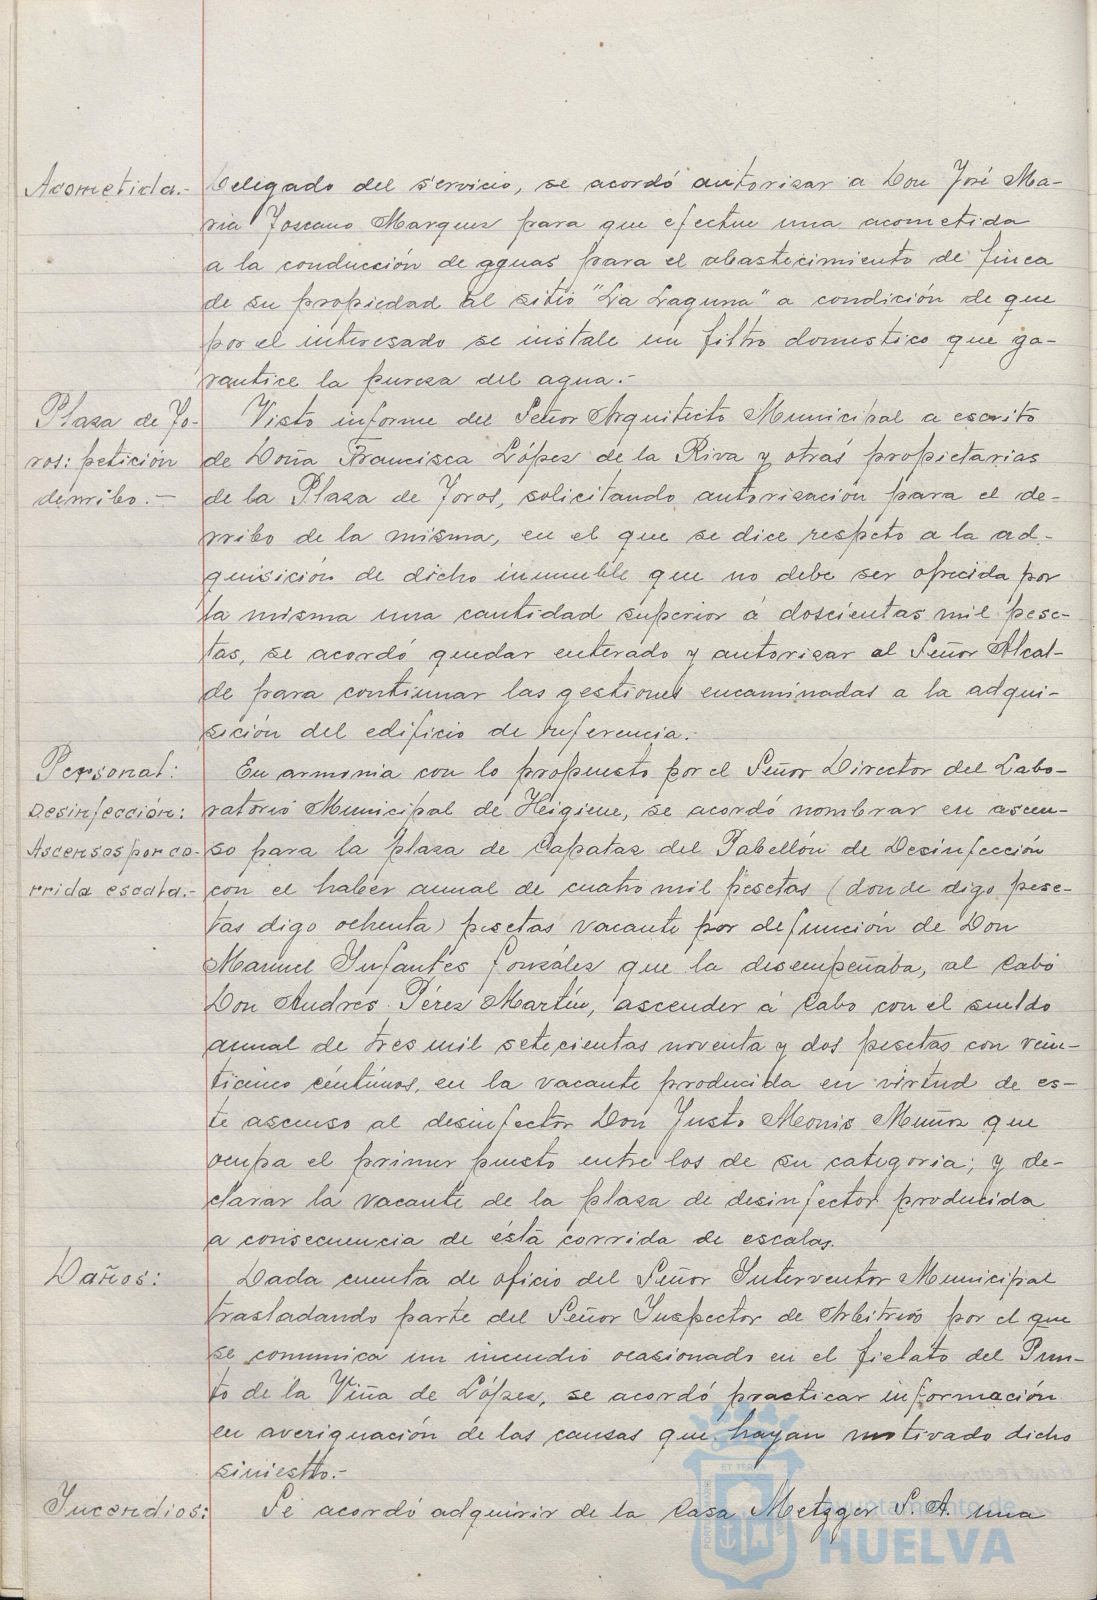 Acometida.-
Delegado del servicio, se acordó autorizar a Don José Ma-
ria Toscano Marquez para que efectue una acometida
a la conducción de aguas para el abastecimiento de finca
de su propiedad al sitio "La Laguna" a condición de que
por el interesado se instale un filtro domestico que ga-
rantice la pureza del agua.-
Plaza de To-
ros: petición
derribo.-
Visto informe del Señor Arquitecto Municipal a escrito
de Doña Francisca López de la Riva y otras propietarias
de la Plaza de Toros, solicitando autorización para el de-
rribo de la misma, en el que se dice respeto a la ad-
quisición de dicho inmueble que no debe ser ofrecida por
la misma una cantidad superior á doscientas mil pese-
tas, se acordó quedar enterado y autorizar al Señor Alcal-
de para continuar las gestiones encaminadas a la adqui-
sición del edificio de referencia.-
Personal:
Desinfección:
Ascensos por co-
rrida escala.-
En armonia con lo propuesto por el Señor Director del Labo-
ratorio Municipal de Heigiene, se acordó nombrar en ascen-
so para la plaza de Capataz del Pabellón de Desinfección
con el haber anual de cuatro mil pesetas (donde digo pese-
tas digo ochenta) pesetas vacante por defunción de Don
Manuel Infantes González que la desempeñaba, al Cabo
Don Andres Pérez Martín, ascender á Cabo con el sueldo
anual de tres mil setecientas noventa y dos pesetas con vein-
ticinco céntimos, en la vacante producida en virtud de es-
te ascenso al desinfector Don Justo Monis Muñoz que
ocupa el primer puesto entre los de su categoria; y de-
clarar la vacante de la plaza de desinfector producida
a consecuencia de ésta corrida de escalas.
Daños:
Dada cuenta de oficio del Señor Interventor Municipal
trasladando parte del Señor Inspector de Arbitrios por el que
se comunica un incendio ocasionado en el fielato del Pun-
to de la Viña de López, se acordó practicar información
en averiguación de las causas que hayan motivado dicho
siniestro.-
Incendios:
Se acordó adquirir de la Casa Metzger S. A. una
Ayuntamiento de
HUELVA